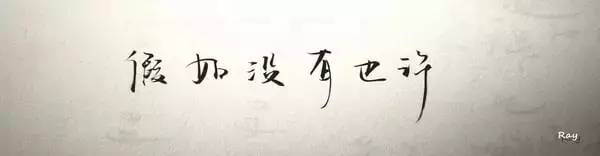 假如没有也许
Ray